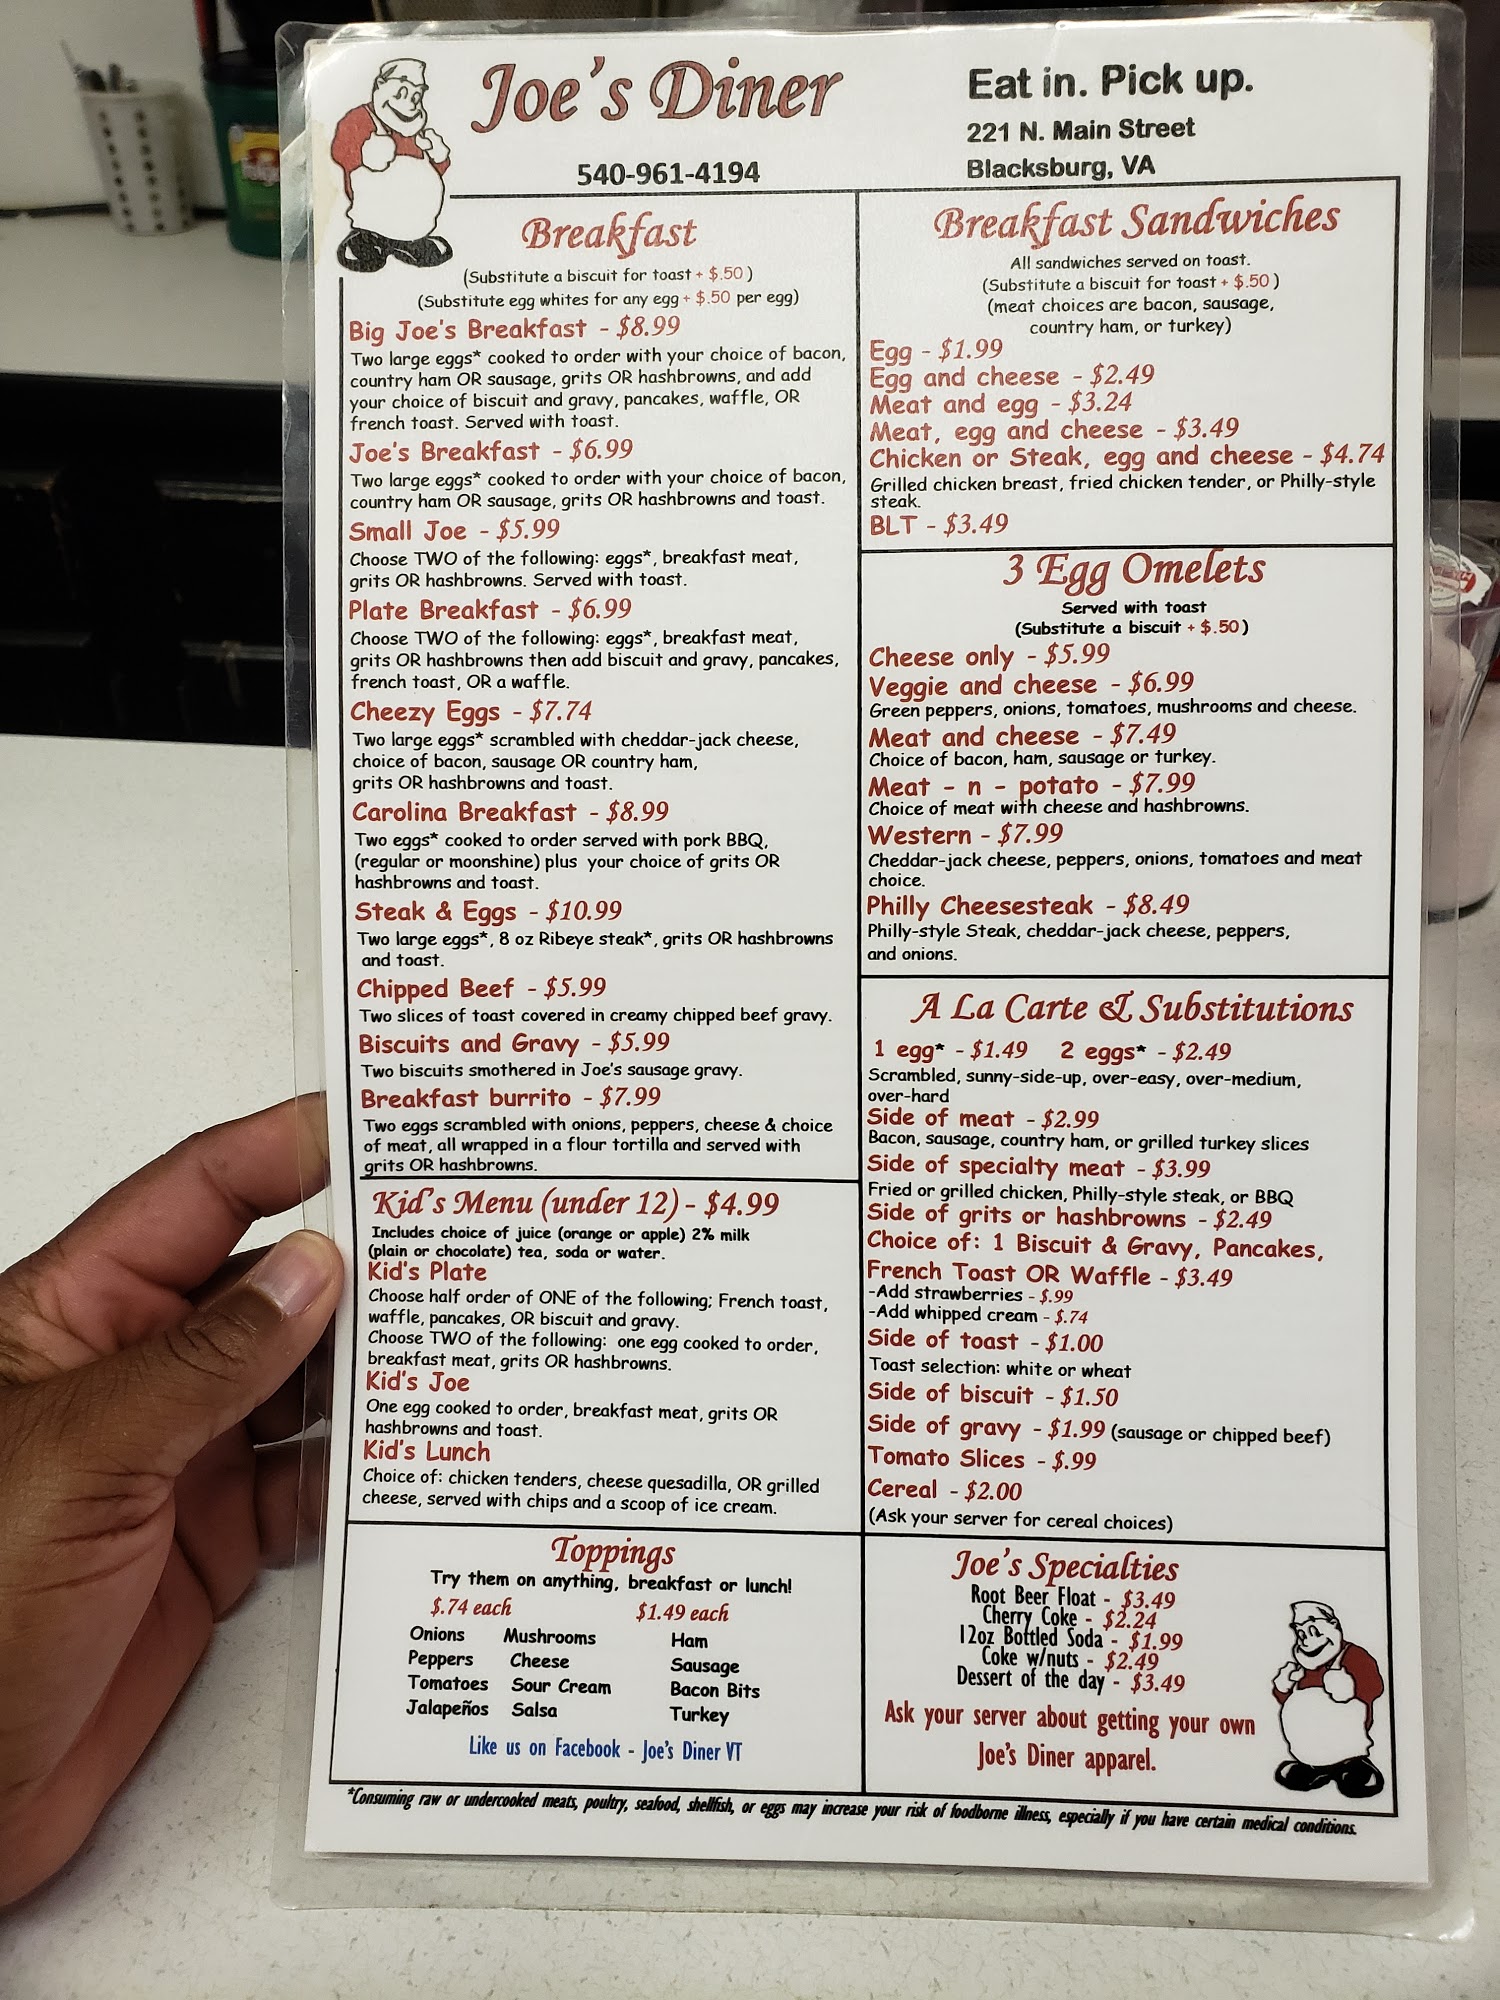 Joe's Diner
540-961-4194
Eat in. Pick up.
221 N. Main Street
Blacksburg, VA
Breakfast
(Substitute a biscuit for toast + $.50 )
(Substitute egg whites for any egg + $.50 per egg)
Big Joe's Breakfast - $8.99
Two large eggs* cooked to order with your choice of bacon,
country ham OR sausage, grits OR hashbrowns, and add
your choice of biscuit and gravy, pancakes, waffle, OR
french toast. Served with toast.
Joe's Breakfast - $6.99
Two large eggs* cooked to order with your choice of bacon,
country ham OR sausage, grits OR hashbrowns and toast.
Small Joe - $5.99
Choose TWO of the following: eggs*, breakfast meat,
grits OR hashbrowns. Served with toast.
Plate Breakfast - $6.99
Choose TWO of the following: eggs*, breakfast meat,
grits OR hashbrowns then add biscuit and gravy, pancakes,
french toast, OR a waffle.
Cheezy Eggs - $7.74
Two large eggs* scrambled with cheddar-jack cheese,
choice of bacon, sausage OR country ham,
grits OR hashbrowns and toast.
Carolina Breakfast - $8.99
Two eggs* cooked to order served with pork BBQ,
(regular or moonshine) plus your choice of grits OR
hashbrowns and toast.
Steak & Eggs - $10.99
Two large eggs*, 8 oz Ribeye steak*, grits OR hashbrowns
and toast.
Chipped Beef - $5.99
Two slices of toast covered in creamy chipped beef gravy.
Biscuits and Gravy - $5.99
Two biscuits smothered in Joe's sausage gravy.
Breakfast burrito - $7.99
Two eggs scrambled with onions, peppers, cheese & choice
of meat, all wrapped in a flour tortilla and served with
grits OR hashbrowns.
Kid's Menu (under 12) - $4.99
Includes choice of juice (orange or apple) 2% milk
(plain or chocolate) tea, soda or water.
Kid's Plate
Choose half order of ONE of the following; French toast,
waffle, pancakes, OR biscuit and gravy.
Choose TWO of the following: one egg cooked to order,
breakfast meat, grits OR hashbrowns.
Kid's Joe
One egg cooked to order, breakfast meat, grits OR
hashbrowns and toast.
Kid's Lunch
Choice of: chicken tenders, cheese quesadilla, OR grilled
cheese, served with chips and a scoop of ice cream.
Toppings
Try them on anything, breakfast or lunch!
$.74 each $1.49 each
Onions Mushrooms Ham
Peppers Cheese Sausage
Tomatoes Sour Cream Bacon Bits
Jalapeños Salsa Turkey
Like us on Facebook - Joe's Diner VT
Breakfast Sandwiches
All sandwiches served on toast.
(Substitute a biscuit for toast + $.50 )
(meat choices are bacon, sausage,
country ham, or turkey)
Egg - $1.99
Egg and cheese - $2.49
Meat and egg - $3.24
Meat, egg and cheese - $3.49
Chicken or Steak, egg and cheese - $4.74
Grilled chicken breast, fried chicken tender, or Philly-style
steak.
BLT - $3.49
3 Egg Omelets
Served with toast
(Substitute a biscuit + $.50)
Cheese only - $5.99
Veggie and cheese - $6.99
Green peppers, onions, tomatoes, mushrooms and cheese.
Meat and cheese - $7.49
Choice of bacon, ham, sausage or turkey.
Meat - n - potato - $7.99
Choice of meat with cheese and hashbrowns.
Western - $7.99
Cheddar-jack cheese, peppers, onions, tomatoes and meat
choice.
Philly Cheesesteak - $8.49
Philly-style Steak, cheddar-jack cheese, peppers,
and onions.
A La Carte & Substitutions
1 egg* - $1.49 2 eggs* - $2.49
Scrambled, sunny-side-up, over-easy, over-medium,
over-hard
Side of meat - $2.99
Bacon, sausage, country ham, or grilled turkey slices
Side of specialty meat - $3.99
Fried or grilled chicken, Philly-style steak, or BBQ
Side of grits or hashbrowns - $2.49
Choice of: 1 Biscuit & Gravy, Pancakes,
French Toast OR Waffle - $3.49
-Add strawberries - $.99
-Add whipped cream - $.74
Side of toast - $1.00
Toast selection: white or wheat
Side of biscuit - $1.50
Side of gravy - $1.99 (sausage or chipped beef)
Tomato Slices - $.99
Cereal - $2.00
(Ask your server for cereal choices)
Joe's Specialties
Root Beer Float - $3.49
Cherry Coke - $2.24
12oz Bottled Soda - $1.99
Coke w/nuts - $2.49
Dessert of the day - $3.49
Ask your server about getting your own
Joe's Diner apparel.
*Consuming raw or undercooked meats, poultry, seafood, shellfish, or eggs may increase your risk of foodborne illness, especially if you have certain medical conditions.